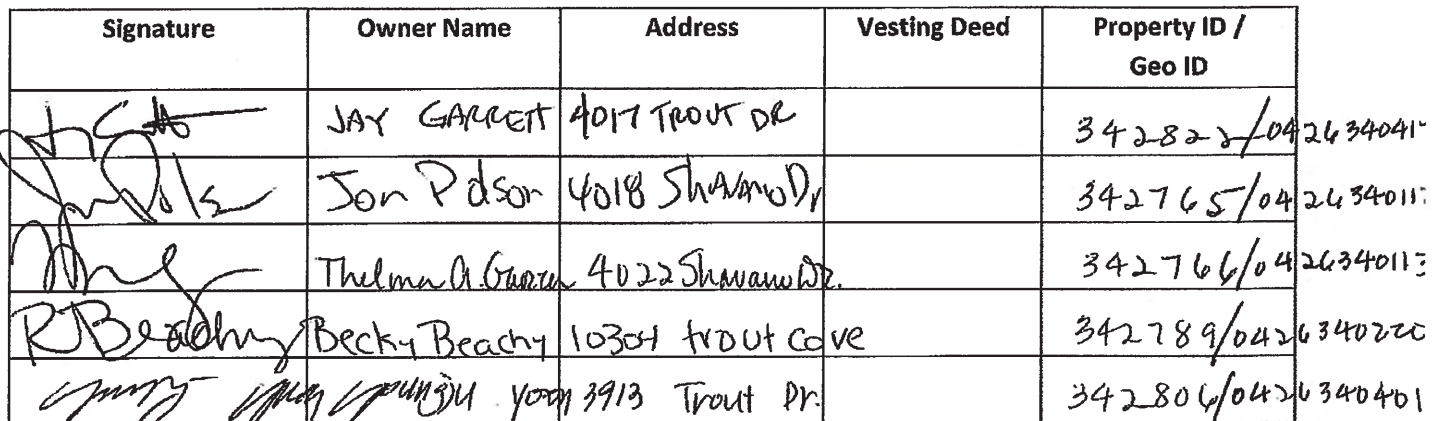 Signature Owner Name Address Vesting Deed Property ID /
Geo ID
JAY GARRETT 4017 TROUT DR 342822/042634041
Jon Polson 4018 Shavano Dr 342765/042634011
Thelma A. Garza 4022 Shavano Dr. 342766/042634011
R Beachy Becky Beachy 10304 trout cove 342789/0426340220
Youngju Yoon 3913 Trout Dr. 342806/0426340401